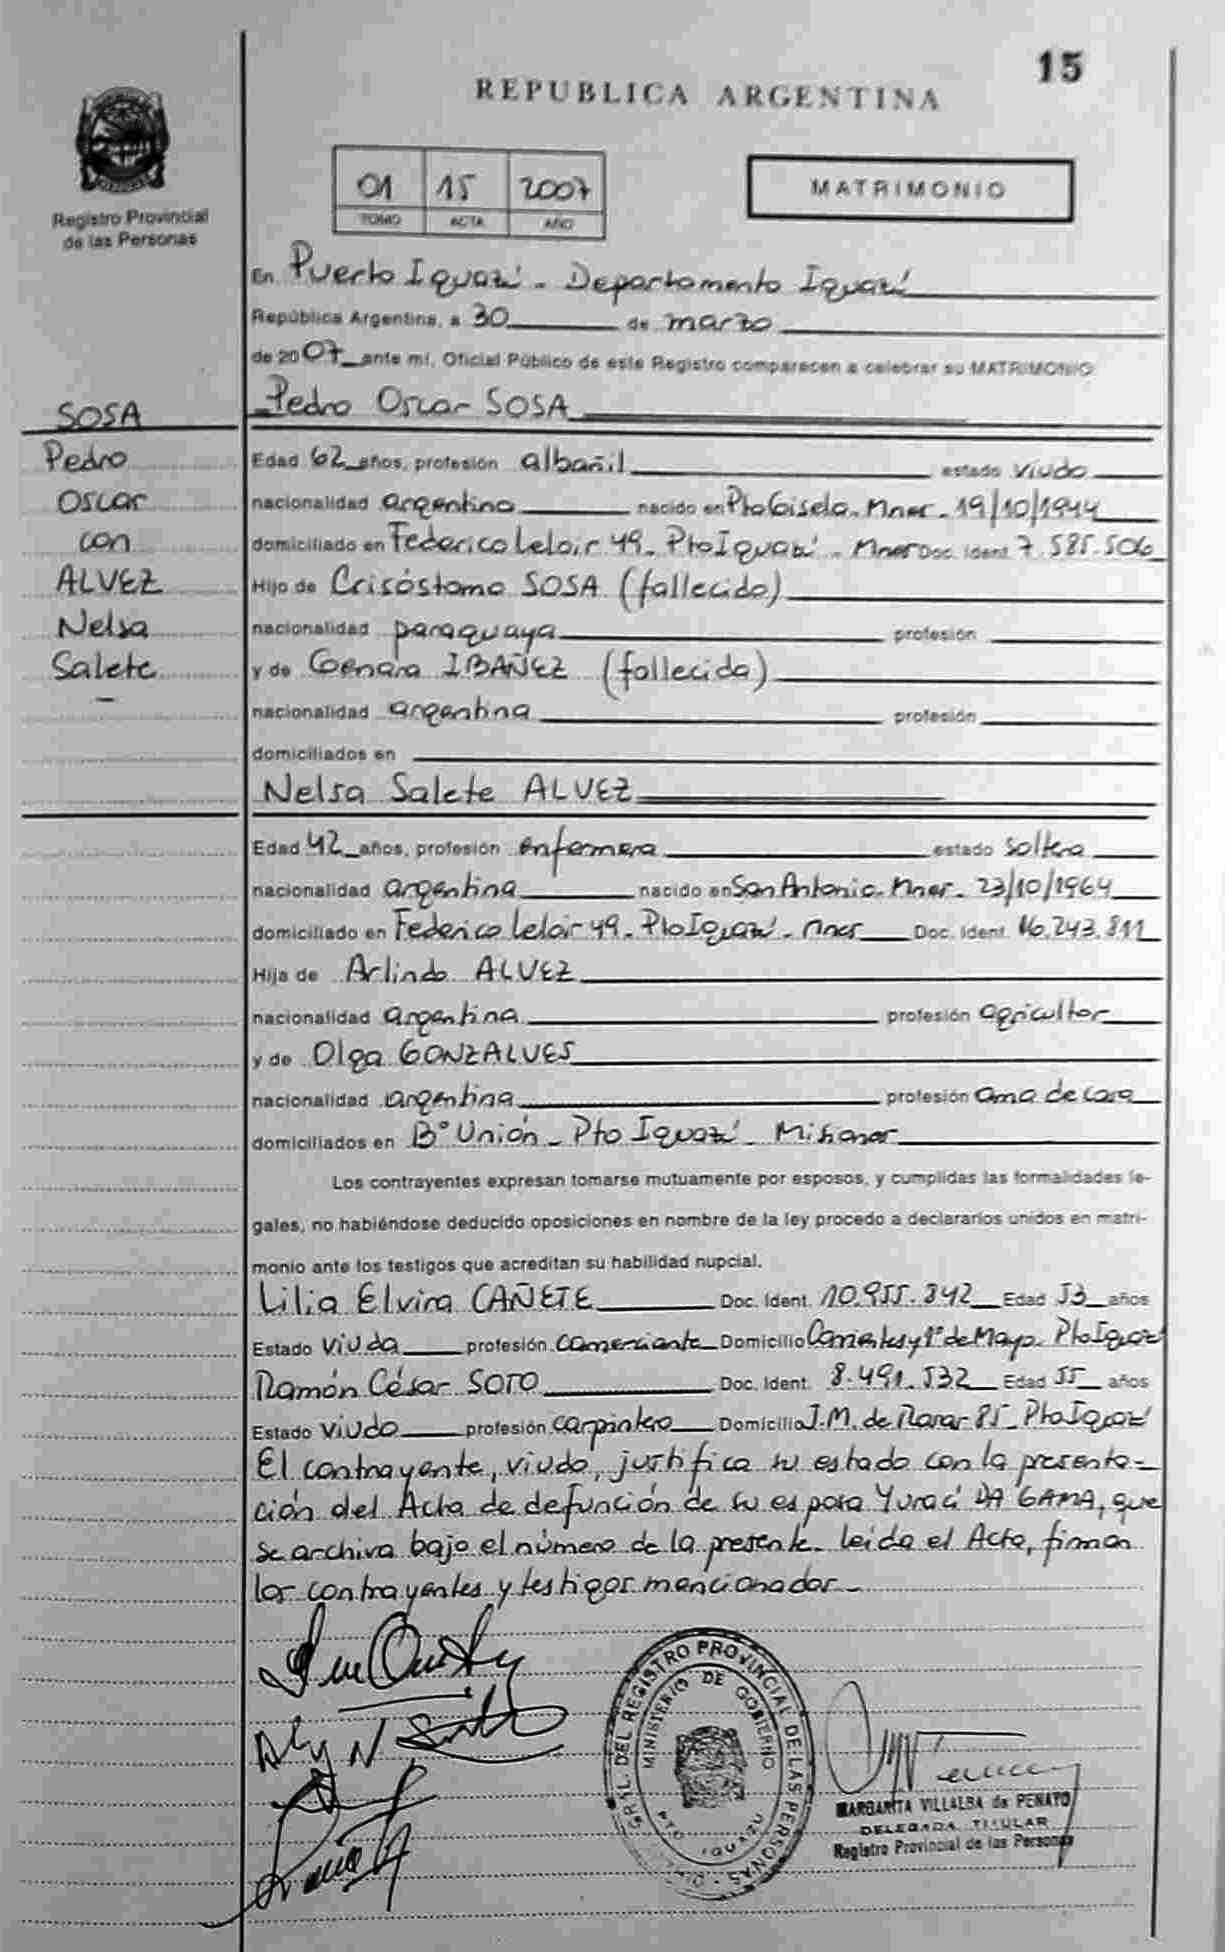 15
REPUBLICA ARGENTINA
Registro Provincial
de las Personas
01 15 2007
TOMO ACTA AÑO
MATRIMONIO
En Puerto Iguazú - Departamento Iguazú
República Argentina, a 30 de marzo
de 2007 ante mí, Oficial Público de este Registro comparecen a celebrar su MATRIMONIO
SOSA
Pedro
Oscar
con
ALVEZ
Nelsa
Salete
Pedro Oscar SOSA
Edad 62 años, profesión albañil estado viudo
nacionalidad argentina nacido en Pto Gisela - Mnes - 19/10/1944
domiciliado en Federico Leloir 49 - Pto Iguazú - Mnes Doc. Ident. 7.585.506
Hijo de Crisóstomo SOSA (fallecido)
nacionalidad paraguaya profesión
y de Genara IBAÑEZ (fallecida)
nacionalidad argentina profesión
domiciliados en
Nelsa Salete ALVEZ
Edad 42 años, profesión enfermera estado soltera
nacionalidad argentina nacido en San Antonio - Mnes - 23/10/1964
domiciliado en Federico Leloir 49 - Pto Iguazú - Mnes Doc. Ident. 16.243.811
Hija de Arlindo ALVEZ
nacionalidad argentina profesión agricultor
y de Olga GONZALVES
nacionalidad argentina profesión ama de casa
domiciliados en B° Unión - Pto Iguazú - Misiones
Los contrayentes expresan tomarse mutuamente por esposos, y cumplidas las formalidades le-
gales, no habiéndose deducido oposiciones en nombre de la ley procedo a declararlos unidos en matri-
monio ante los testigos que acreditan su habilidad nupcial.
Lilia Elvira CAÑETE Doc. Ident. 10.955.342 Edad 53 años
Estado viuda profesión comerciante Domicilio Corrientes y 1° de Mayo - Pto Iguazú
Ramón César SOTO Doc. Ident. 8.491.532 Edad 55 años
Estado viudo profesión carpintero Domicilio J.M. de Rosas 85 - Pto Iguazú
El contrayente, viudo, justifica su estado con la presenta-
ción del Acta de defunción de su esposa Yuraci DA GAMA, que
se archiva bajo el número de la presente. Leída el Acta, firman
los contrayentes y testigos mencionados -
GRAL. DEL REGISTRO PROVINCIAL DE LAS PERSONAS
MINISTERIO DE GOBIERNO
PTO. IGUAZU
MARGARITA VILLALBA de PENAYO
DELEGADA TITULAR
Registro Provincial de las Personas